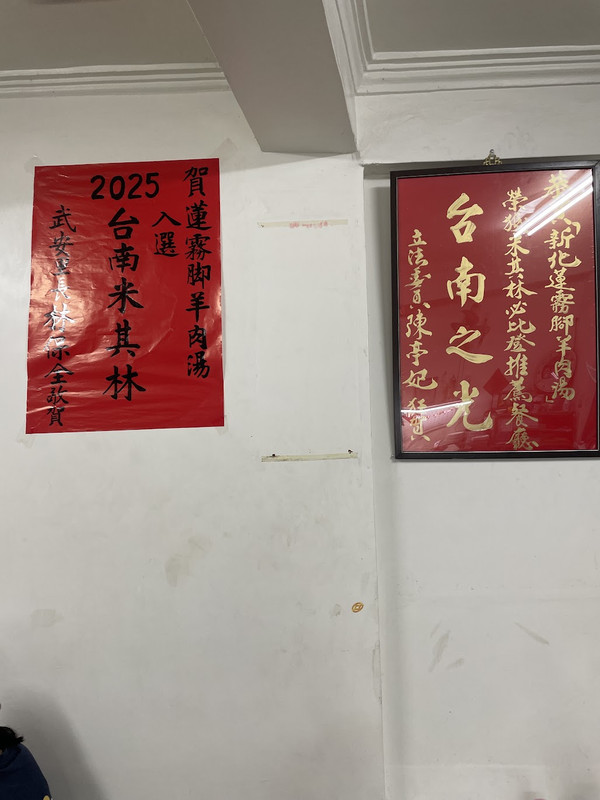 賀蓮霧脚羊肉湯
入選
2025
台南米其林
武安里長林保全敬賀
恭賀新化蓮霧脚羊肉湯
榮獲米其林必比登推薦餐廳
台南之光
立法委員陳亭妃 賀